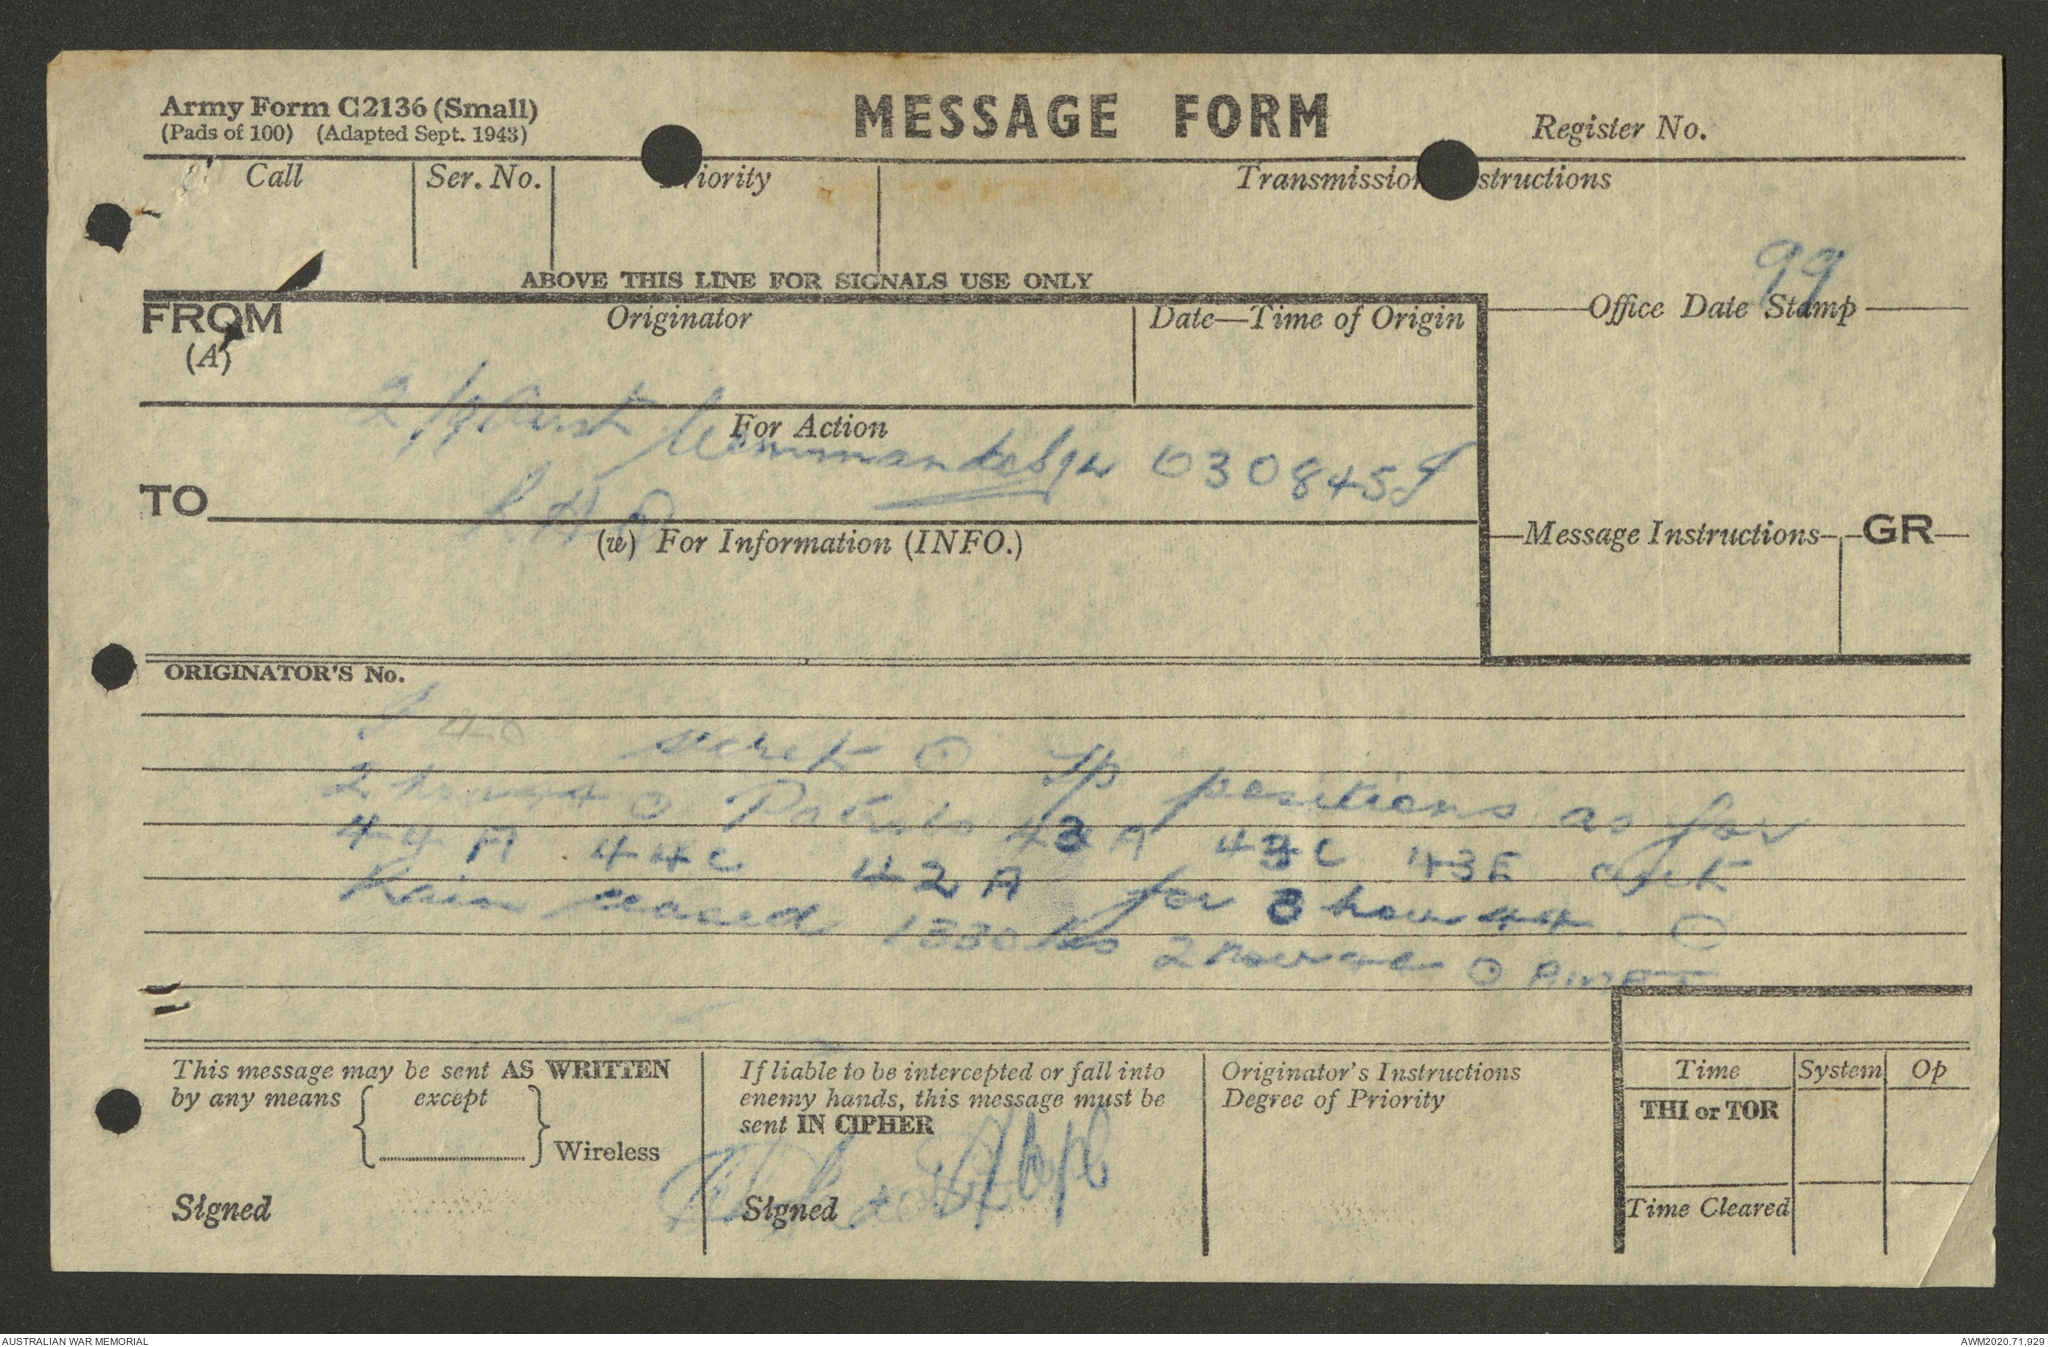 Army Form C2136 (Small)
(Pads of 100) (Adapted Sept. 1943)
MESSAGE FORM
Register No.
Call
Ser. No.
Priority
Transmission Instructions
ABOVE THIS LINE FOR SIGNALS USE ONLY
99
FROM
(A)
Originator
Date—Time of Origin
Office Date Stamp
2/9 Aust Commando Sqn 030845I
For Action
TO
R.H.Q
(w) For Information (INFO.)
Message Instructions
GR
ORIGINATOR'S No.
I 40 secret ⊙ Tp positions as for
2 Nov 44 ⊙ Patrols 43A 43C 43E
44A 44C 42A for 3 Nov 44 ⊙
Rain ceased 1330 hrs 2 Nov ⊙
This message may be sent AS WRITTEN
by any means { except } Wireless
Signed
If liable to be intercepted or fall into
enemy hands, this message must be
sent IN CIPHER
Signed
Originator's Instructions
Degree of Priority
Time
System
Op
THI or TOR
Time Cleared
AUSTRALIAN WAR MEMORIAL
AWM2020.71.929